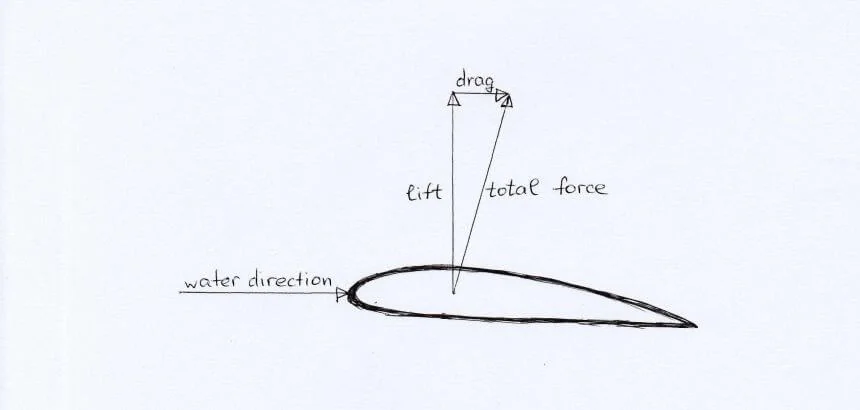 drag
lift
total force
water direction